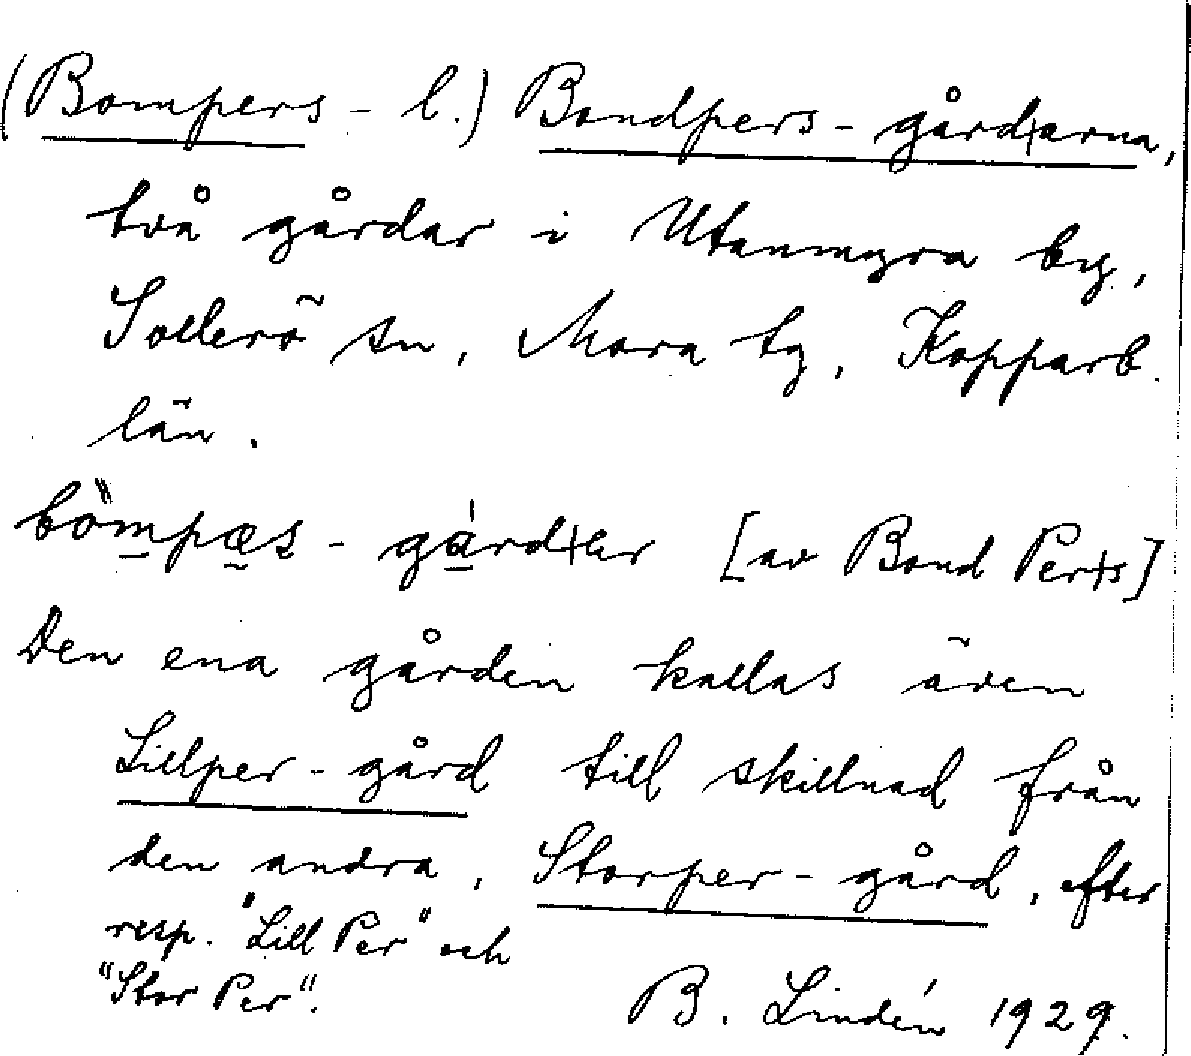 (Bompers - l.) Bondpers-gård+arna,
två gårdar i Utanmyra by,
Sollerö sn, Mora tg, Kopparb.
län.
bömpæs - gård+er [av Bond Per+s]
Den ena gården kallas även
Lillper-gård till skillnad från
den andra, Storper-gård, efter
resp. "Lill Per" och
"Stor Per".
B. Lindén 1929.